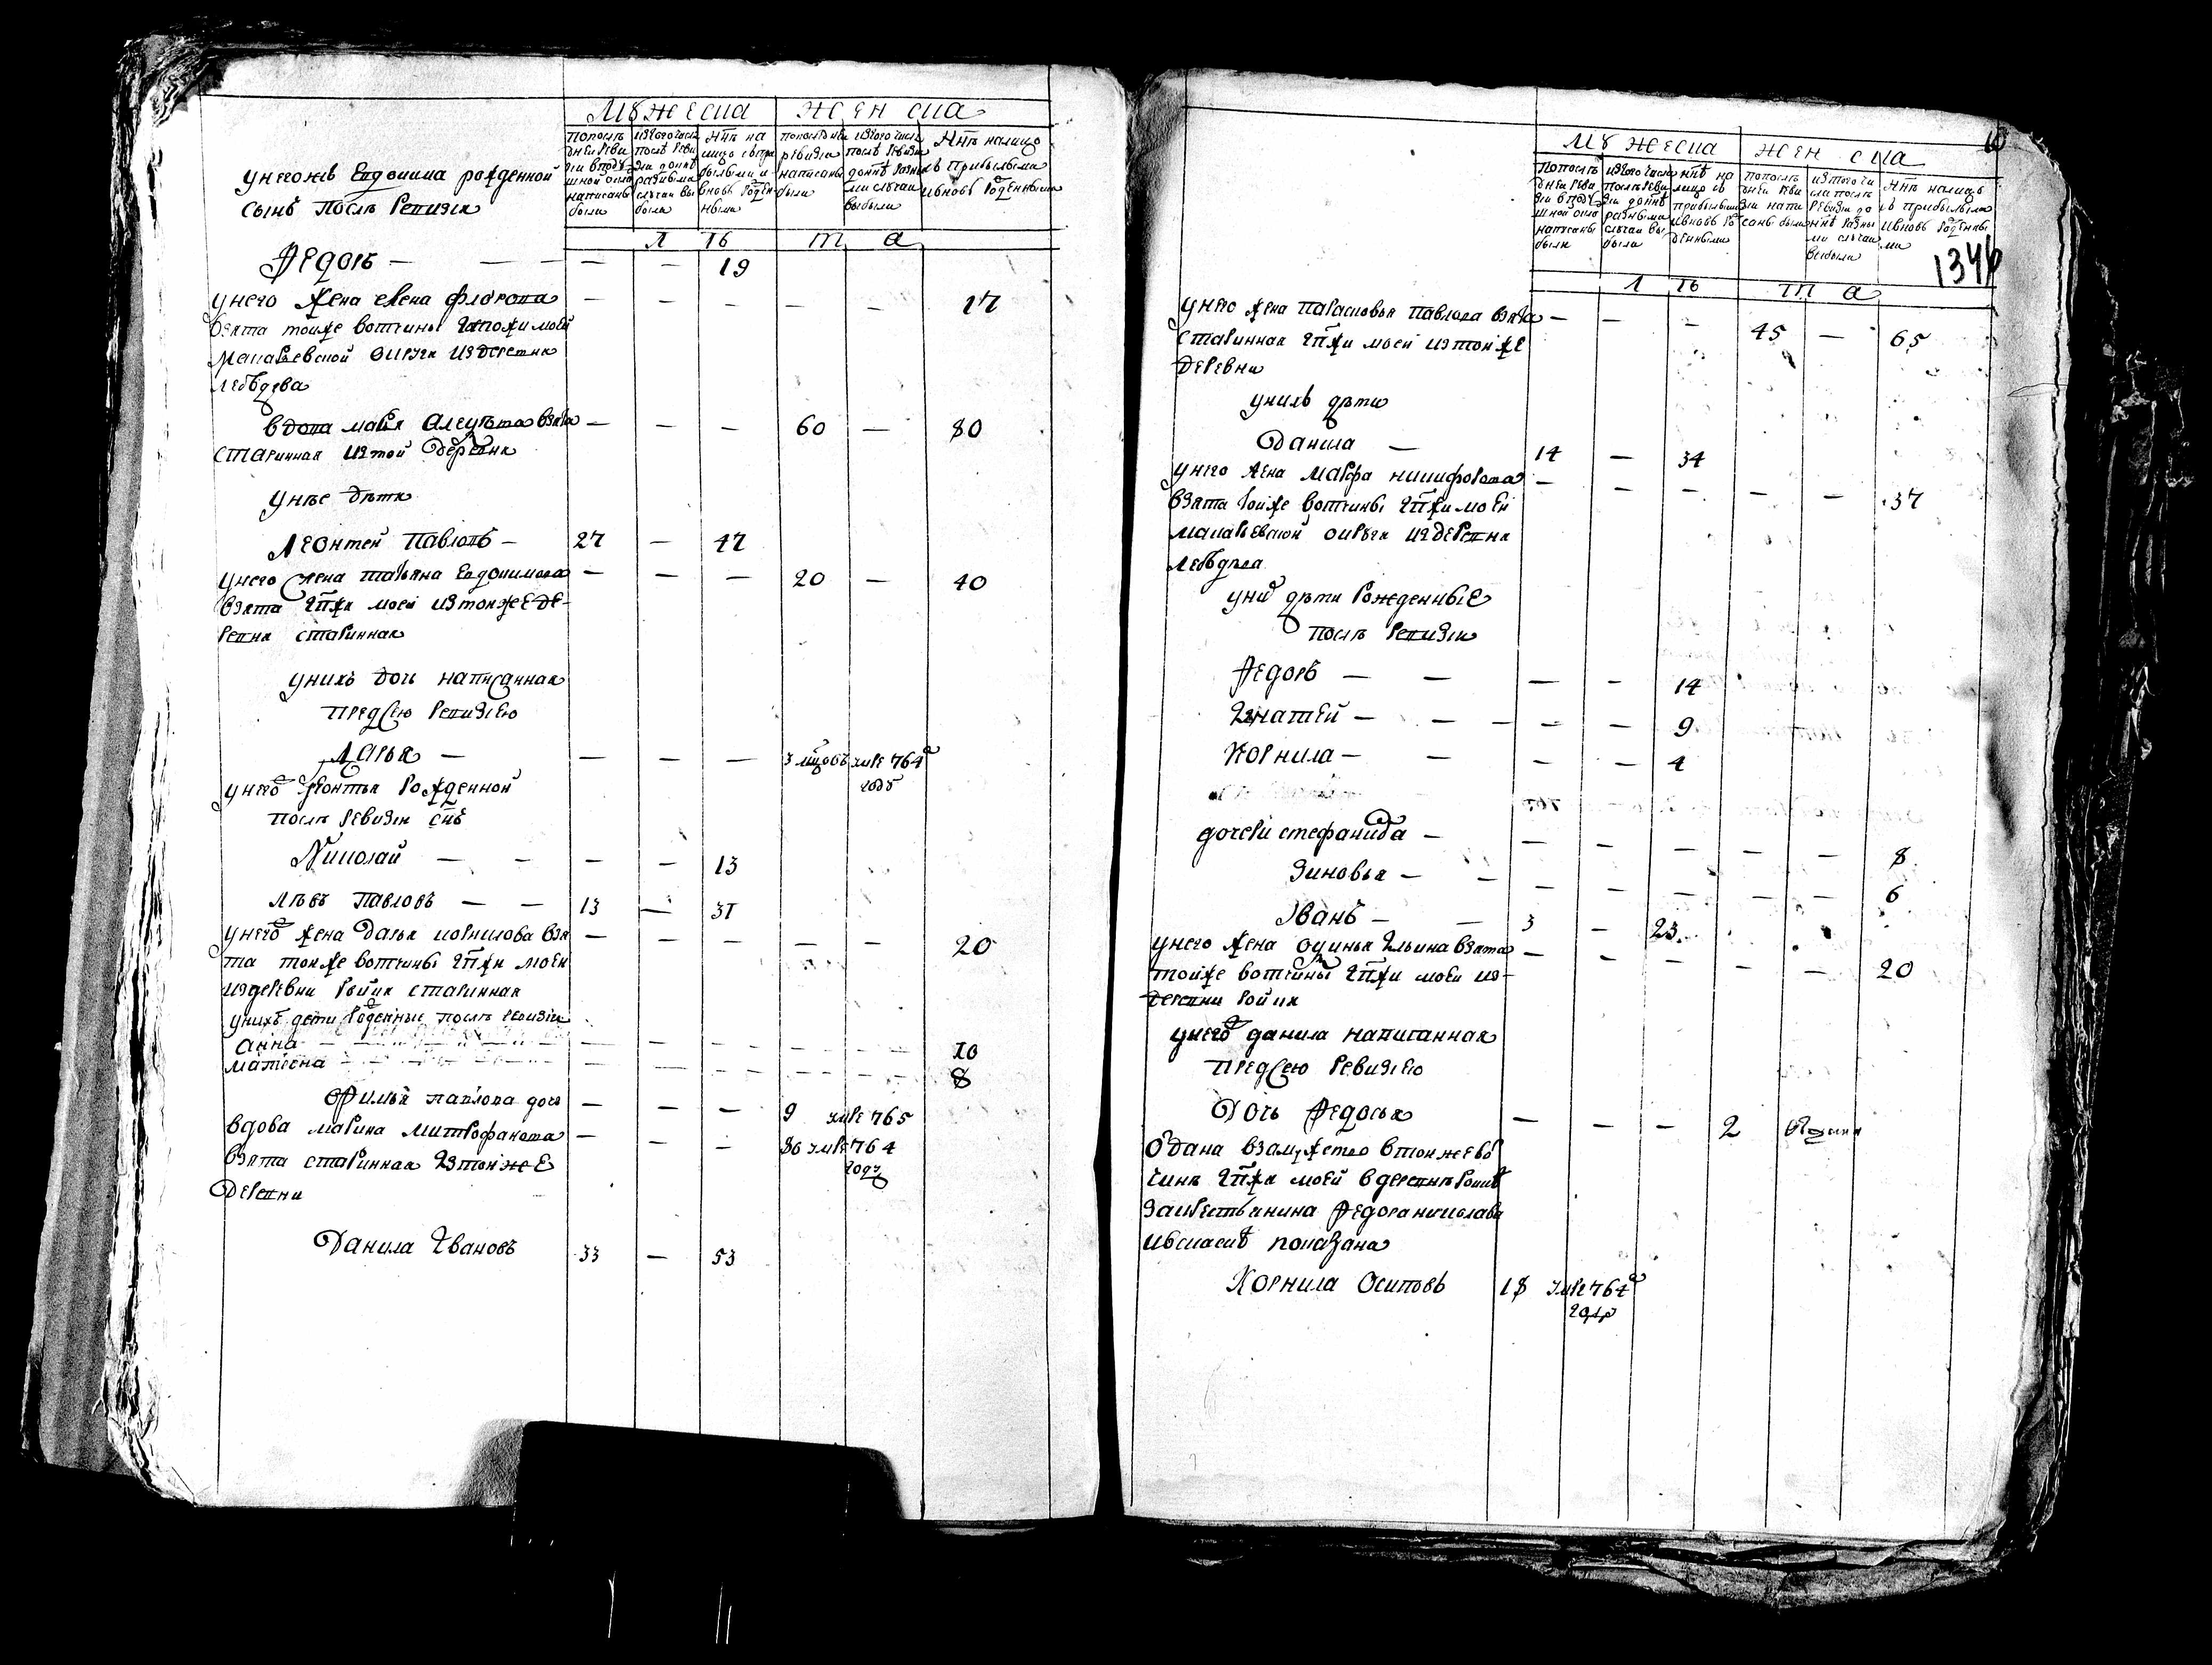 Мꙋжеска женска
попослѣдней ревизии в подушной окладъ написаны были
исъ того числа послѣ ревизии до ннѣ разными случаи выбыли
ннѣ на лицо съ прибылыми и вновь рожденными
попослѣдней ревизии написаны были
исъ того числа послѣ ревизии до ннѣ разными случаи выбыли
ннѣ на лицо съ прибылыми и вновь рожденными
л ѣ т а
у негожъ Евдокима рожденной
сынъ послѣ ревизии
Федоръ — — — — — 19
у него жена елена флорова — — — — — 17
взята тойже вотчины гспожи моей
макарьевской округи из деревни
лебѣдева
вдова марья алеѯѣева взята — — — 60 — 80
старинная из той деревни
у нѣе дѣти
Леонтей Павловъ — 27 — 47
у него жена татьяна Евдокимова — — — 20 — 40
взята гпжи моей из тойже де-
ревни старинная
у нихъ дочь написанная
пред сею ревизıею
Дарья — — — — 3 мцовъ умре 764
году
у него леонтья рожденной
послѣ ревизıи снъ
Николай — — — — 13
Лѣвъ Павловъ — — 13 — 31
у него жена дарья корнилова взя — — — — — 20
та тойже вотчины гпжи моей
из деревни рыйки старинная
у нихъ дети рожденные послѣ ревизıи
анна — — — — — — 10
матрена — — — — — — 8
Фимья павлова дочь — — — 9 умре 765
вдова марина митрофанова — — — 80 умре 764
взята старинная из тойже году
деревни
Данила Ивановъ 33 — 53
10
1346
Мꙋжеска женска
попослѣдней ревизии в подушной окладъ написаны были
исъ того числа послѣ ревизии до ннѣ разными случаи выбыли
ннѣ на лицо съ прибылыми и вновь рожденными
попослѣдней ревизии написаны были
ис того числа послѣ ревизии до ннѣ разными случаи выбыли
ннѣ на лицо съ прибылыми и вновь рожденными
л ѣ т а
у него жена парасковья павлова взята — — — 45 — 65
старинная гпжи моей из тойже
деревни
у нихъ дѣти
Данила — 14 — 34
у него жена марфа никифорова — — — — — 37
взята тойже вотчины гпжи моей
макарьевской округи из деревни
лебѣдева
у них дѣти рожденные
послѣ ревизıи
Федоръ — — — — 14
Игнатей — — — — — 9
Корнила — — — — 4
дочери стефанида — — — — — — 8
Зиновья — — — — — — — 6
Иванъ — — 3 — 23
у него жена Ильина взята — — — — — 20
тойже вотчины гпжи моей из-
деревни ройки
у него данила написанная
пред сею ревизıею
Дочь Федосья — — — 2
Одана взамужство в тойже во
чинѣ гпжи моей в деревнѣ
за крестьянина Федора
показана
Корнила Осиповъ 18 умре 764
году